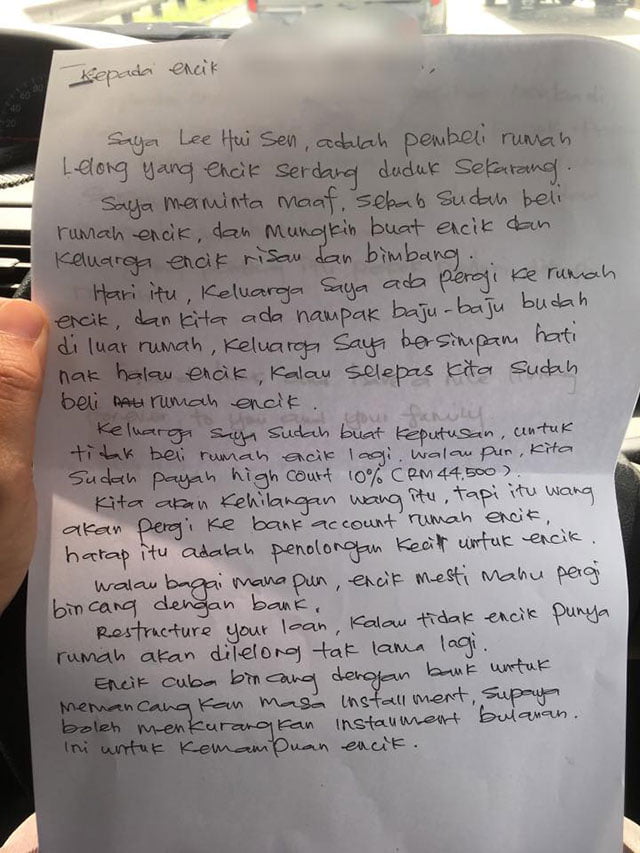 Kepada encik
Saya Lee Hui Sen, adalah pembeli rumah
Lelong yang encik serdang duduk sekarang.
Saya merminta maaf, sebab sudah beli
rumah encik, dan mungkin buat encik dan
keluarga encik risau dan bimbang.
Hari itu, keluarga saya ada pergi ke rumah
encik, dan kita ada nampak baju-baju budah
di luar rumah, keluarga saya bersimpam hati
nak halau encik, kalau selepas kita sudah
beli rumah encik.
Keluarga saya sudah buat keputusan, untuk
tidak beli rumah encik lagi. walau pun, kita
sudah payah high court 10% (RM 44,500).
Kita akan kehilangan wang itu, tapi itu wang
akan pergi ke bank account rumah encik,
harap itu adalah penolongan kecil untuk encik.
walau bagai mana pun, encik mesti mahu pergi
bincang dengan bank.
Restructure your loan, kalau tidak encik punya
rumah akan dilelong tak lama lagi.
Encik cuba bincang dengan bank untuk
memancangkan masa installment, supaya
boleh menkurangkan installment bulanan.
Ini untuk kemampuan encik.
to you and your family